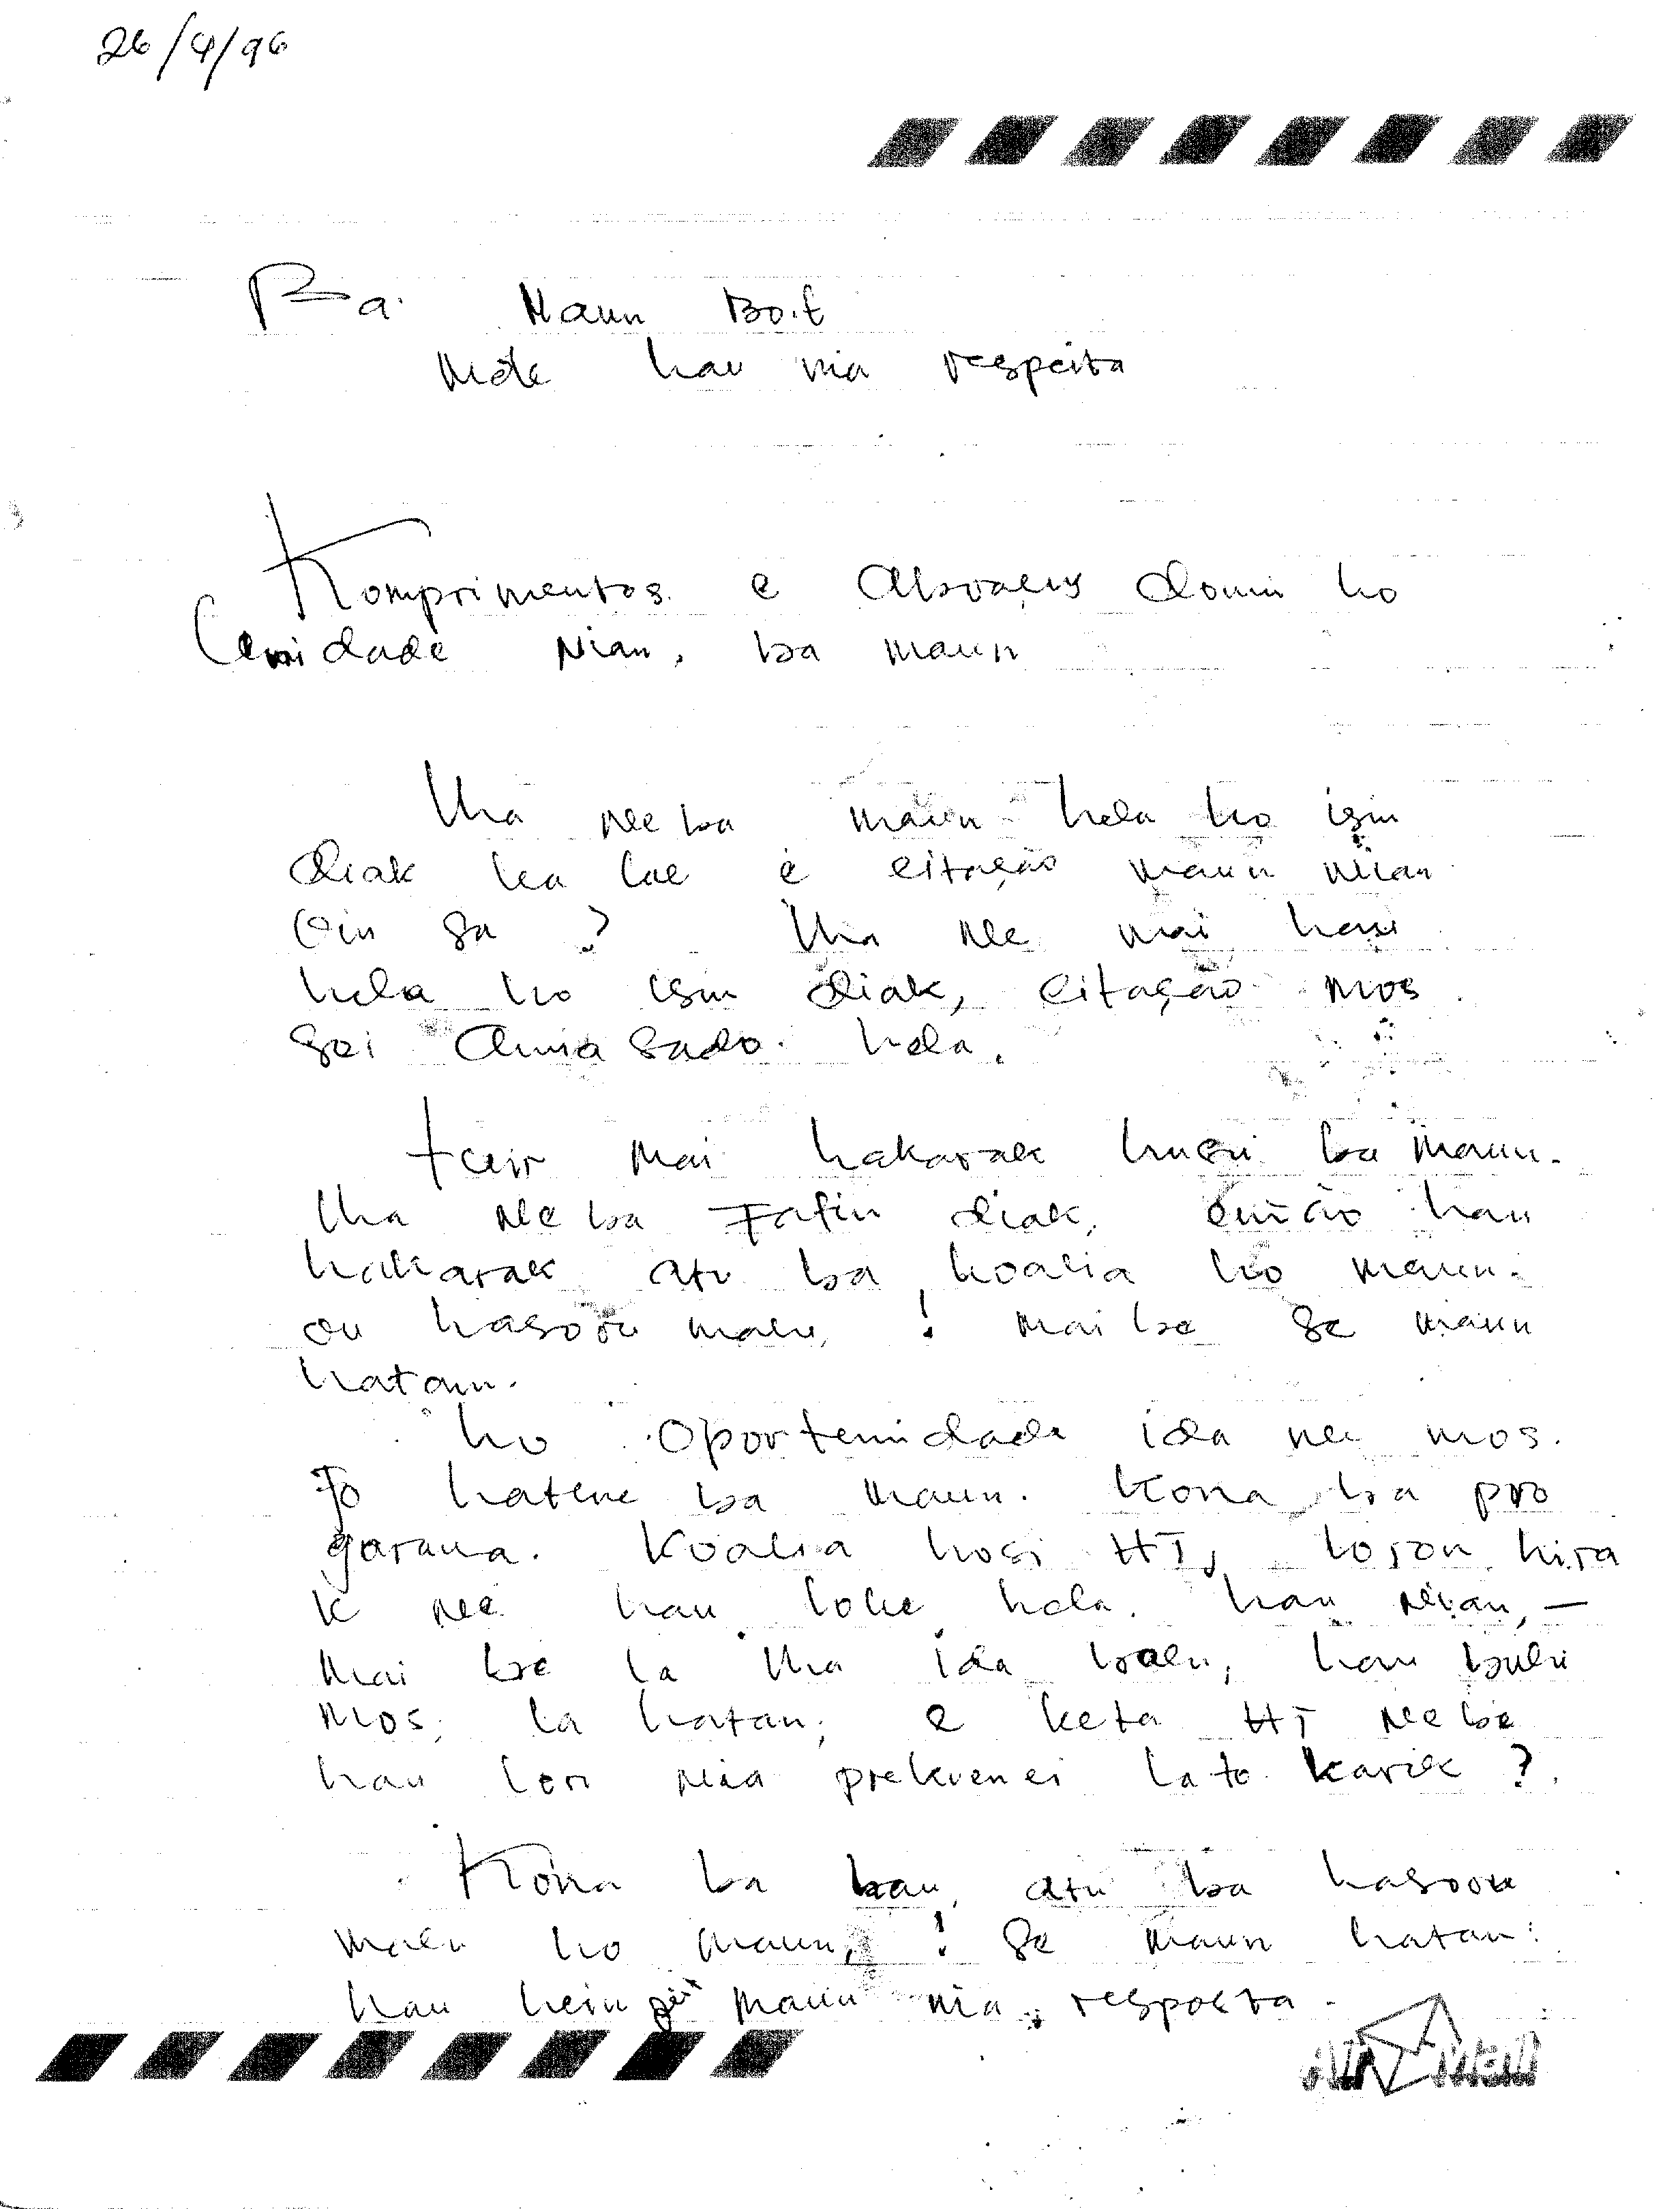 26/4/96
Ba. Maun Bo.t
nebe hau nia respeita
Komprimentos e Abraços domin ho
Unidade Nian, ba maun
Iha neba maun hela ho isin
diak ka lae e citação maun nian
oin sa ? Iha ne mai hau
hela ho isin diak, citação mos
sei amiasado hela.
tuir mai hakarak husu ba maun.
Iha neba Fatin diak, então hau
hakarak atu ba koalia ho maun.
ou hasoru malu, ! mai be se maun
hatan.
ho oportunidade ida ne mos.
Fo hatene ba maun. Kona ba pro
garama. Koalia hosi HT, loron hira
k ne hau loke hela. hau nian, —
mai be la iha ida balu, hau bulu
mos, la hatan, e keta HT nebe
hau lori nia prekuenci la to karik ?.
Kona ba hau, atu ba hasoru
malu ho maun, ! se maun hatan:
hau hein sei maun nia resposta.
Air Mail